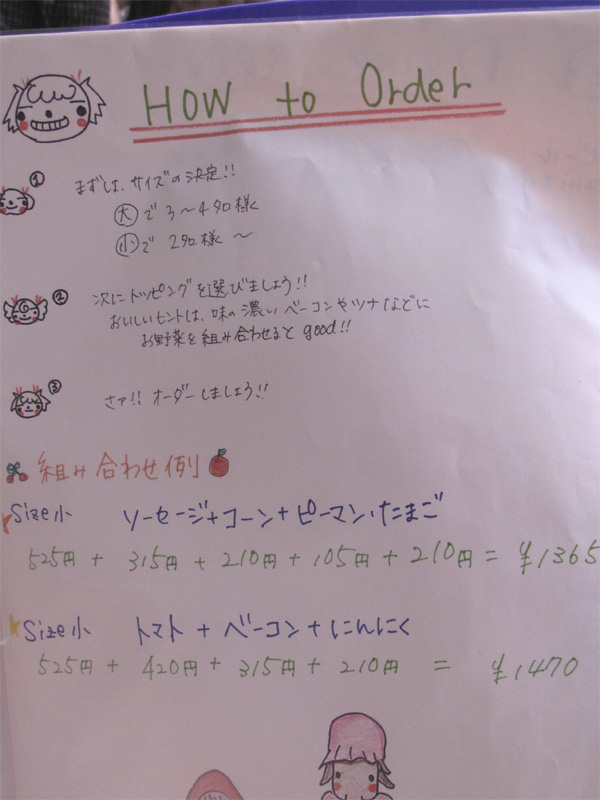 How to Order
① まずは、サイズの決定!!
大で 3〜4名様
小で 2名様 〜
② 次にトッピングを選びましょう!!
おいしいヒントは、味の濃いベーコンやツナなどに
お野菜を組み合わせると good!!
③ さァ!! オーダーしましょう!!
組み合わせ例
Size小 ソーセージ+コーン+ピーマン・たまご
525円 + 315円 + 210円 + 105円 + 210円 = ¥1365
Size小 トマト + ベーコン + にんにく
525円 + 420円 + 315円 + 210円 = ¥1470